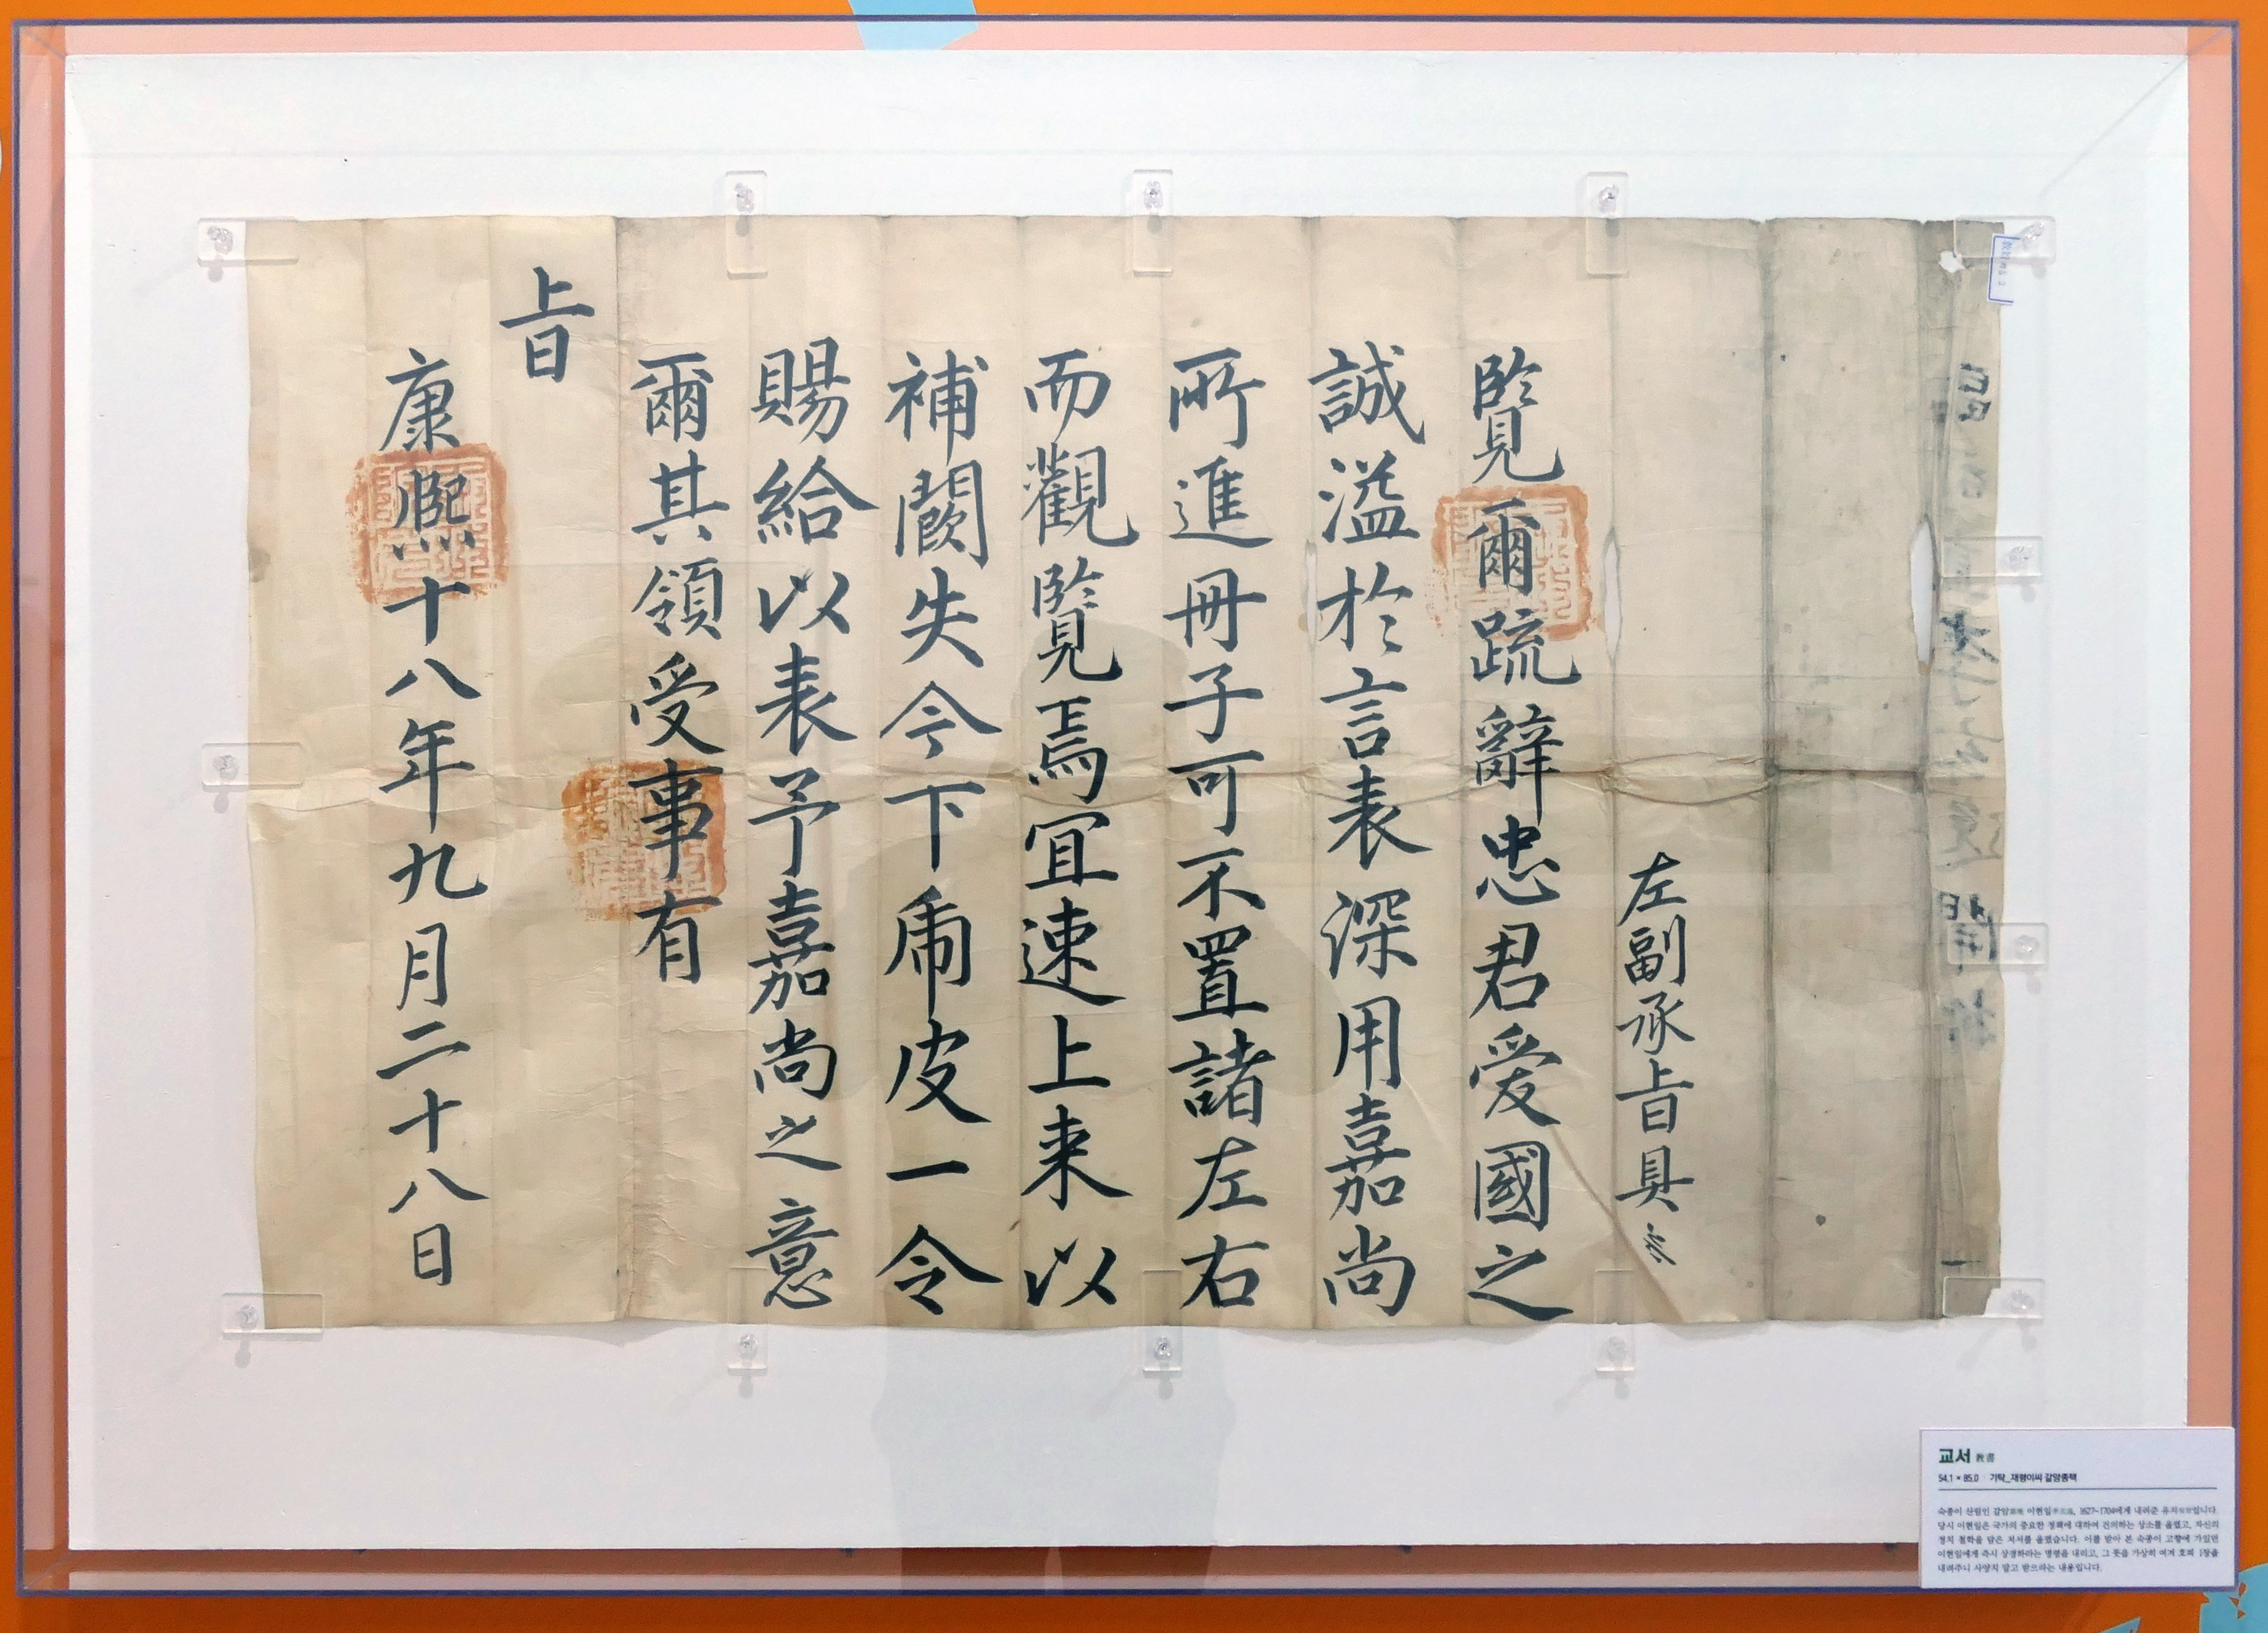 左副承旨具
覽爾疏辭忠君愛國之
誠溢於言表深用嘉尚
所進冊子可不置諸左右
而觀覽焉宜速上来以
補闕失今下虎皮一令
賜給以表予嘉尚之意
爾其領受事有
旨
康熙十八年九月二十八日
교서 敎書
54.1 × 85.0 기탁_재령이씨 갈암종택
숙종이 산림인 갈암葛庵 이현일李玄逸, 1627~1704에게 내려준 유지有旨입니다.
당시 이현일은 국가의 중요한 정책에 대하여 건의하는 상소를 올렸고, 자신의
정치 철학을 담은 저서를 올렸습니다. 이를 받아 본 숙종이 고향에 가있던
이현일에게 즉시 상경하라는 명령을 내리고, 그 뜻을 가상히 여겨 호피 1장을
내려주니 사양치 말고 받으라는 내용입니다.